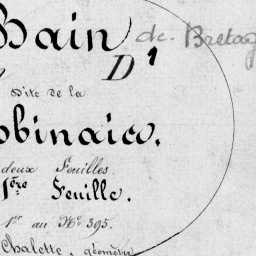 Bain de Bretag
D 1
Dite de la
obinais.
deux Feuilles.
1ère Feuille.
1er au No 395.
Chalette, géomètre